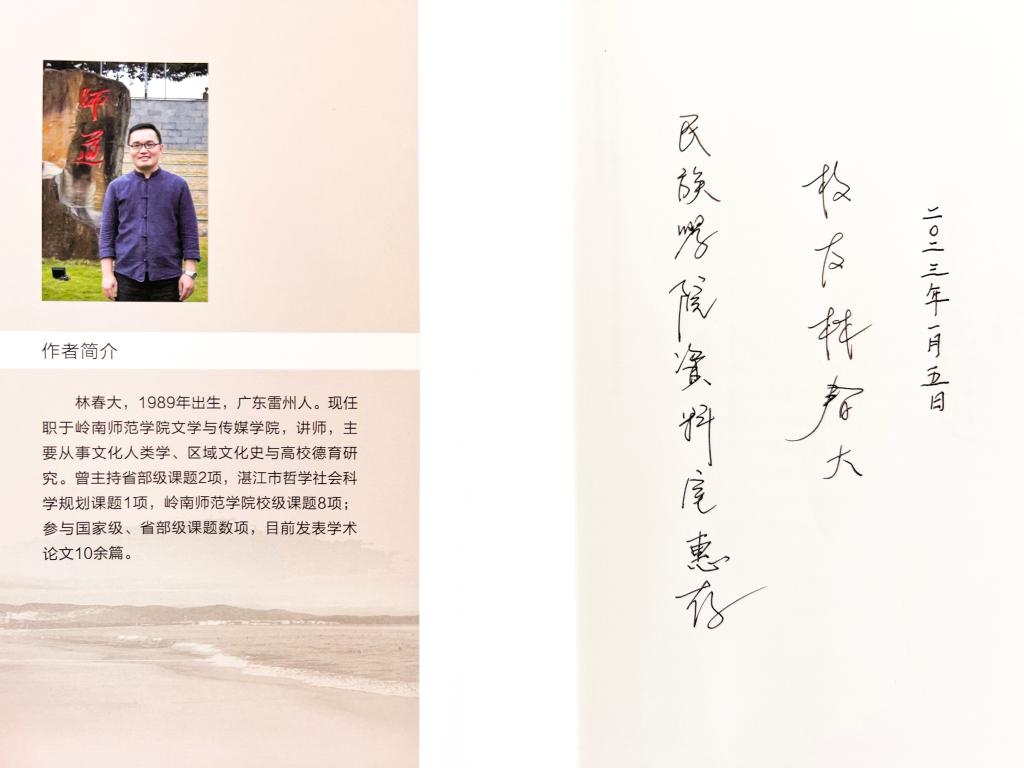 师道
作者简介
林春大，1989年出生，广东雷州人。现任
职于岭南师范学院文学与传媒学院，讲师，主
要从事文化人类学、区域文化史与高校德育研
究。曾主持省部级课题2项，湛江市哲学社会科
学规划课题1项，岭南师范学院校级课题8项；
参与国家级、省部级课题数项，目前发表学术
论文10余篇。
民族学院资料室惠存
校友林春大
二〇二三年一月五日